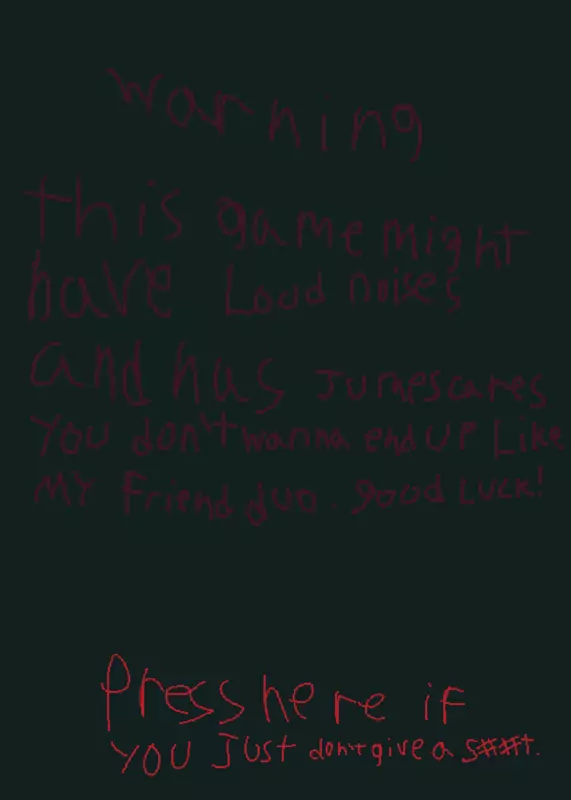 warning
this game might
have Loud noises
and has Jumpscares
YOU don't wanna end UP Like
MY Friend duo. good Luck!
Press here if
YOU Just don't give a s##t.